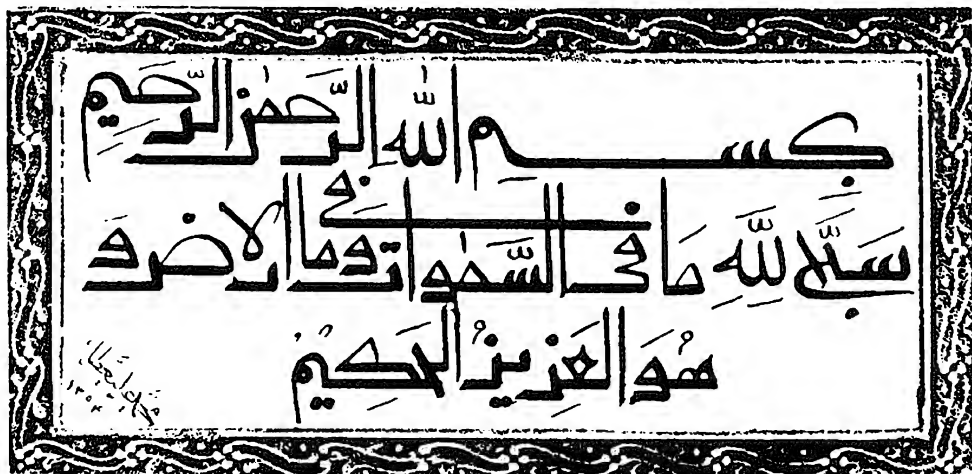 بِسْمِ اللّٰهِ الرَّحْمٰنِ الرَّحِيمِ
سَبَّحَ لِلّٰهِ مَا فِي السَّمٰوَاتِ وَمَا فِي الْاَرْضِ وَ
هُوَ الْعَزِيزُ الْحَكِيمُ
١٣٥٢